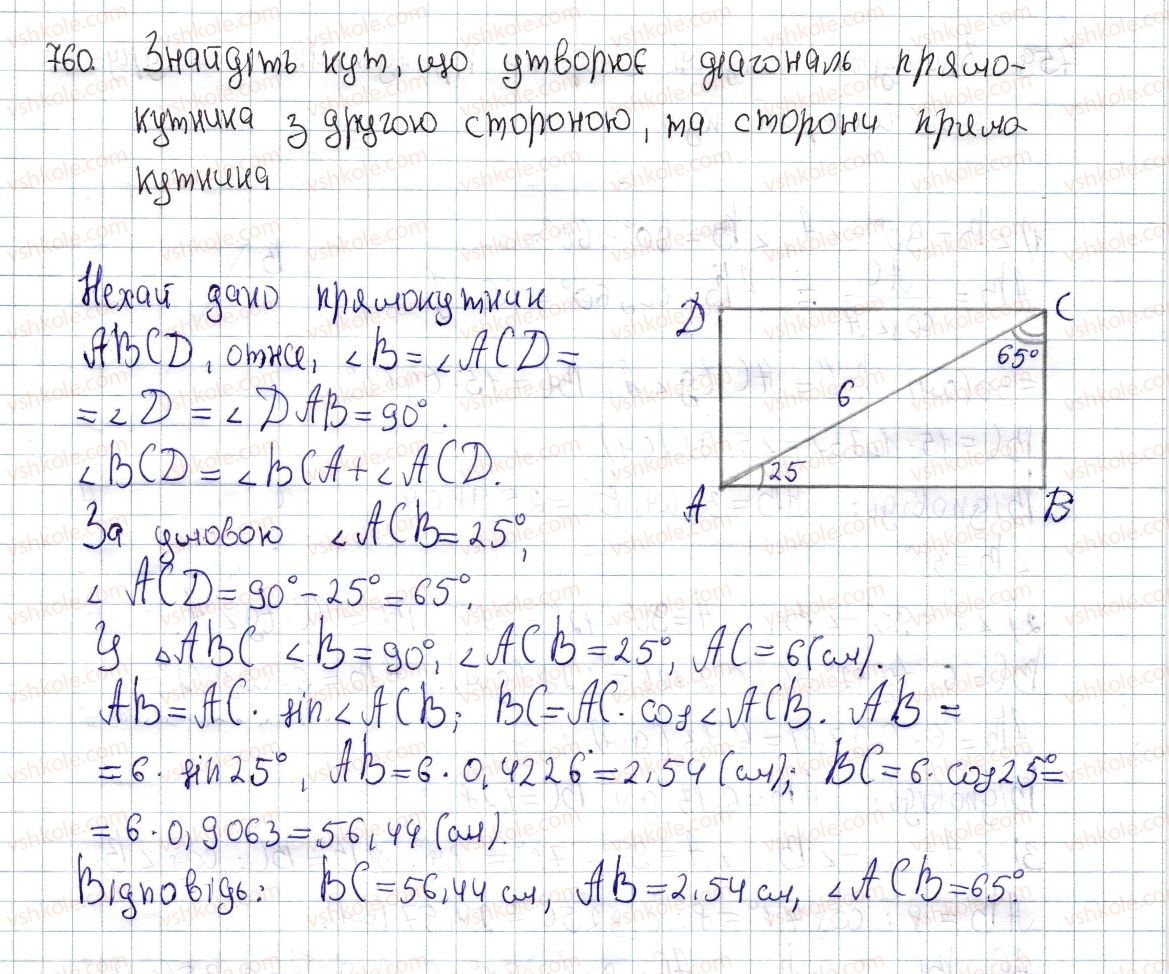 760. Знайдіть кут, що утворює діагональ прямо-
кутника з другою стороною, та сторони прямо
кутника
Нехай дано прямокутник
ABCD, отже, ∠B = ∠ACD =
= ∠D = ∠DAB = 90°.
∠BCD = ∠BCA + ∠ACD.
За умовою ∠ACB = 25°,
∠ACD = 90° - 25° = 65°.
У △ABC ∠B = 90°, ∠ACB = 25°, AC = 6 (см).
AB = AC · sin∠ACB; BC = AC · cos∠ACB. AB =
= 6 · sin25°, AB = 6 · 0,4226 = 2.54 (см); BC = 6 · cos25° =
= 6 · 0,9063 = 56,44 (см).
Відповідь: BC = 56,44 см, AB = 2.54 см, ∠ACB = 65°.
D
C
65°
6
25
A
B
vshkole.com